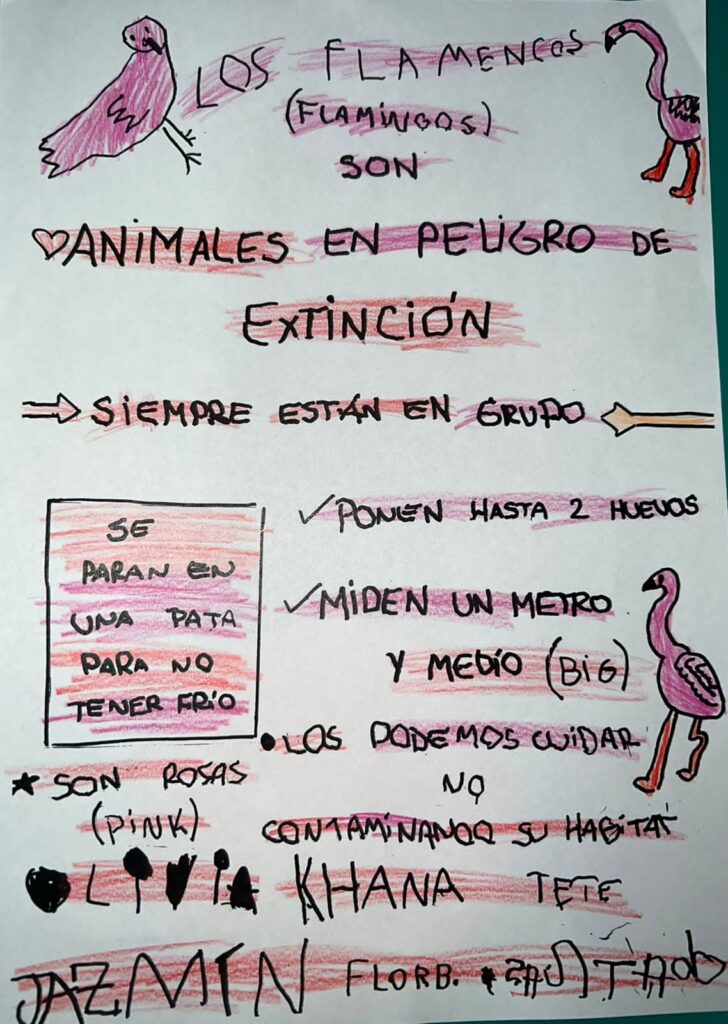 LOS FLAMENCOS
(FLAMINGOS)
SON
ANIMALES EN PELIGRO DE
EXTINCIÓN
SIEMPRE ESTÁN EN GRUPO
SE
PARAN EN
UNA PATA
PARA NO
TENER FRÍO
PONEN HASTA 2 HUEVOS
MIDEN UN METRO
Y MEDIO (BIG)
LOS PODEMOS CUIDAR
NO
CONTAMINANDO SU HABITAT
SON ROSAS
(PINK)
OLIVIA KHANA TETE
JAZMIN FLORB.